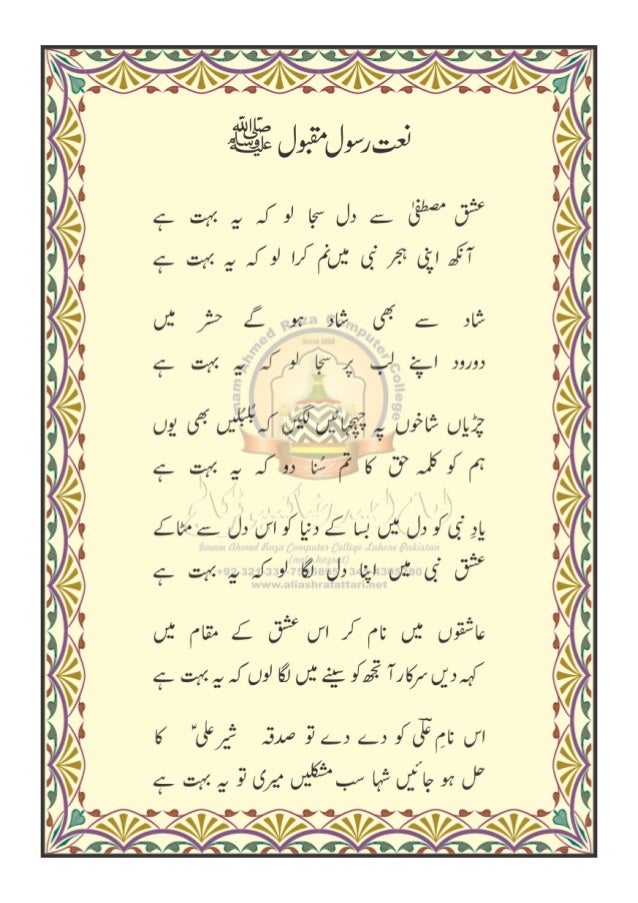 نعت رسول مقبول ﷺ
عشق مصطفیٰ سے دل سجا لو کہ یہ بہت ہے
آنکھ اپنی ہجر نبی میں نم کرا لو کہ یہ بہت ہے
شاد سے بھی شاد ہو گے حشر میں
دورود اپنے لب پر سجا لو کہ یہ بہت ہے
چڑیاں شاخوں پہ چہچہائیں لگیں کہ بُلبُلیں بھی یوں
ہم کو کلمہ حق کا تم سُنا دو کہ یہ بہت ہے
یادِ نبی کو دل میں بسا کے دنیا کو اس دل سے مٹا کے
عشق نبی میں اپنا دل لگا لو کہ یہ بہت ہے
عاشقوں میں نام کر اس عشق کے مقام میں
کہہ دیں سرکار آ تجھ کو سینے میں لگا لوں کہ یہ بہت ہے
اس نامِ علی کو دے دے تو صدقہ شیر علی کا
حل ہو جائیں شہا سب مشکلیں میری تو یہ بہت ہے
Imam Ahmed Raza Computer College
Since 2008
Imam Ahmed Raza Computer College Lahore Pakistan
www.aliashrafattari.net